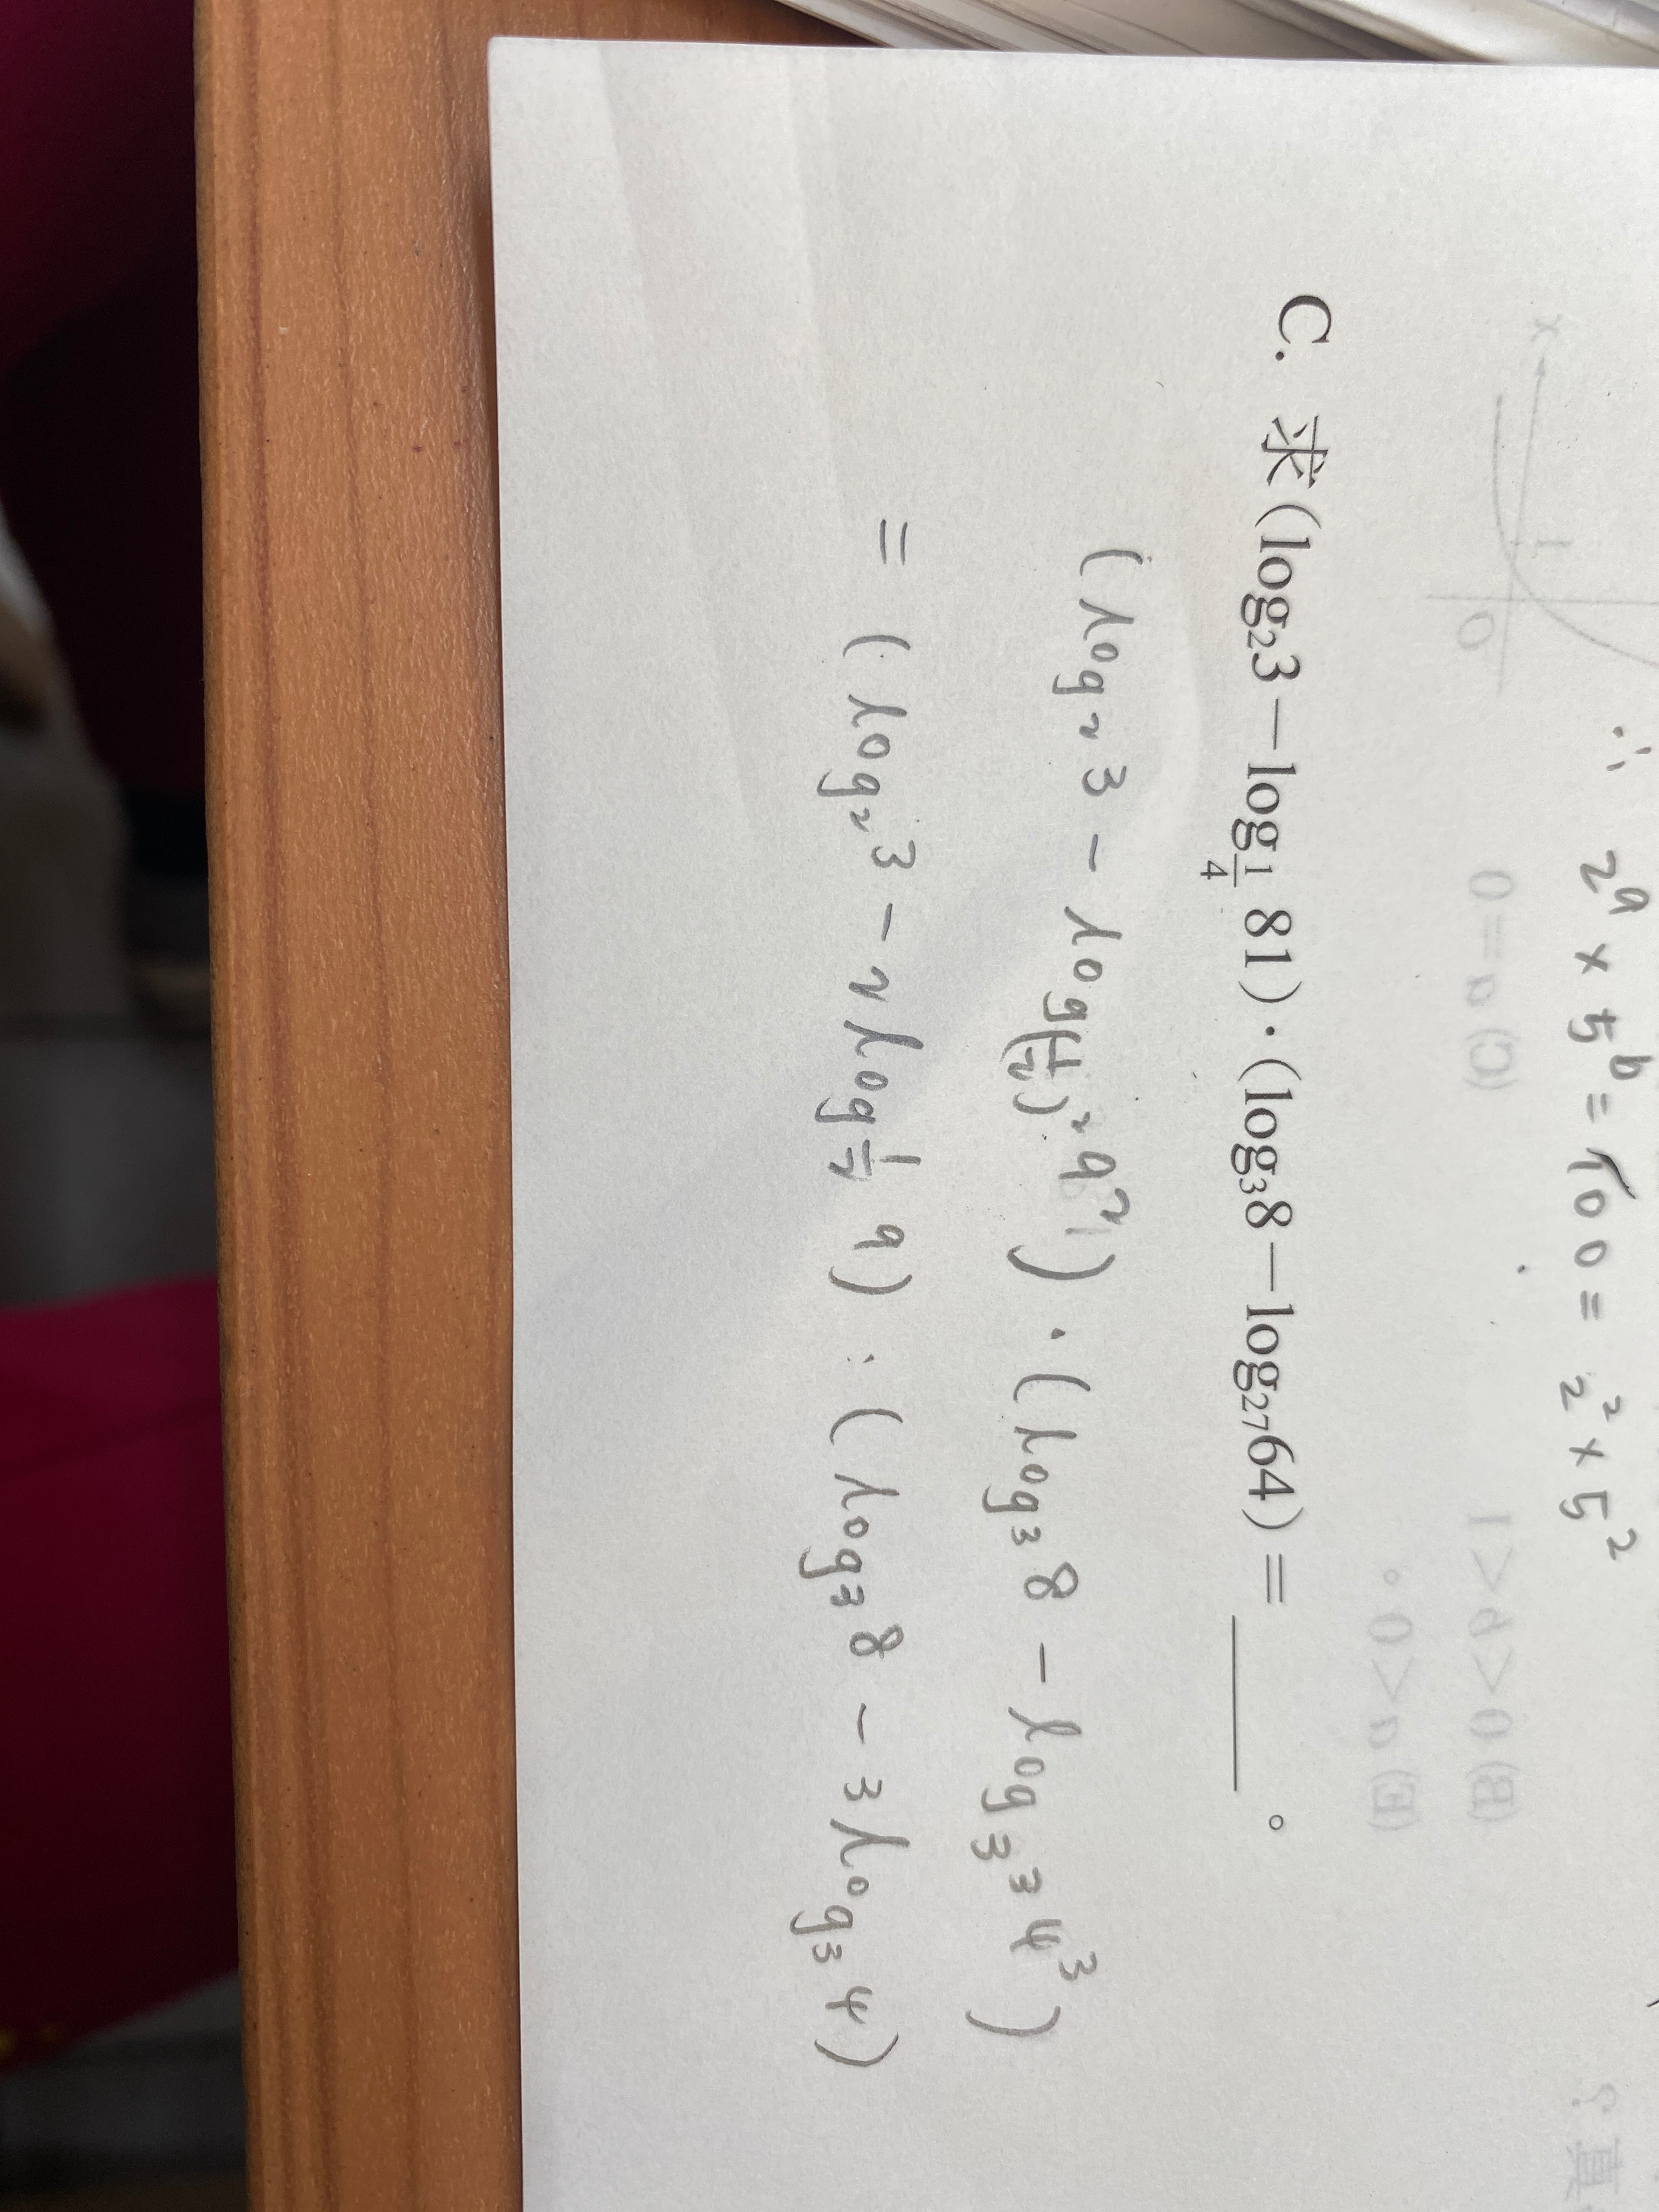 ∴ 2ᵃ × 5ᵇ = 100 = 2² × 5²
C. 求(log₂3－log_{1/4} 81)·(log₃8－log₂₇64)＝＿＿＿。
(log₂3 - log_{(1/2)²} 9²) · (log₃8 - log_{3³} 4³)
= (log₂3 - 2log_{1/2} 9) · (log₃8 - 3log₃4)